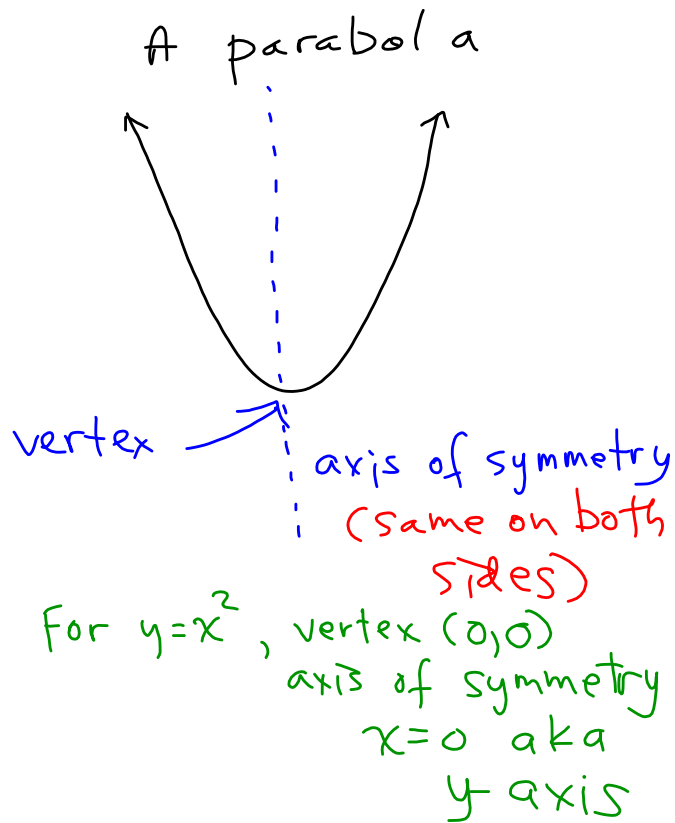 A parabola
vertex
axis of symmetry
(same on both
sides)
For y=x², vertex (0,0)
axis of symmetry
x=0 aka
y-axis